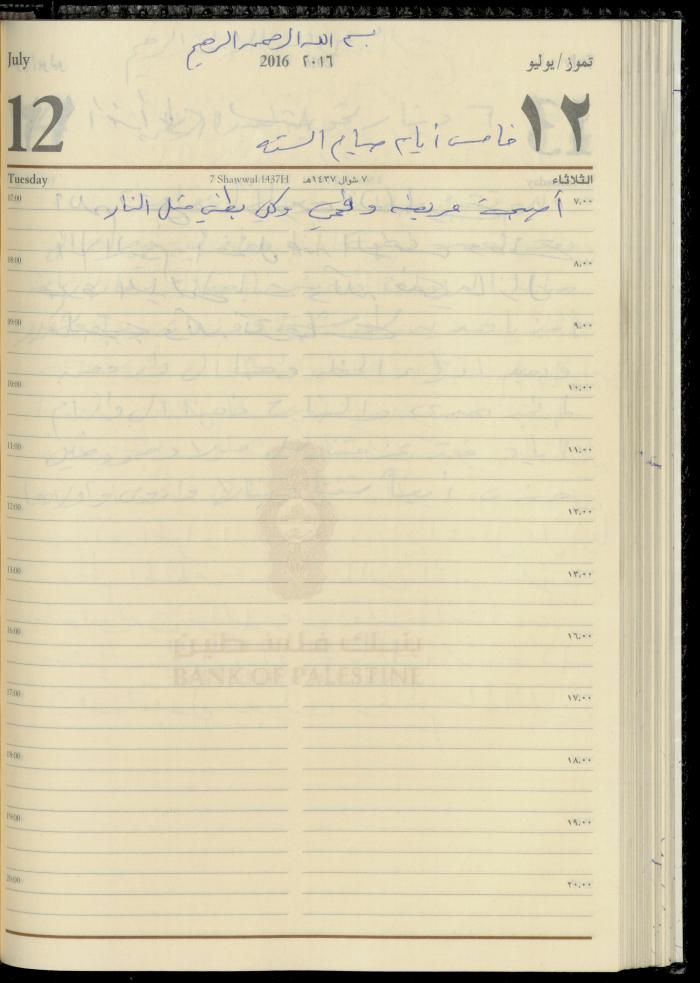 بسم الله الرحمن الرحيم
July 2016 ٢٠١٦ تموز/يوليو
12 ١٢
خامس أيام صيام السته
Tuesday 7 Shawwal 1437H ٧ شوال ١٤٣٧هـ الثلاثاء
07:00 ٧,٠٠
أصبحت مريضه وكل بطني مثل النار
08:00 ٨,٠٠
09:00 ٩,٠٠
10:00 ١٠,٠٠
11:00 ١١,٠٠
12:00 ١٢,٠٠
13:00 ١٣,٠٠
16:00 ١٦,٠٠
بنك فلسطين
BANK OF PALESTINE
17:00 ١٧,٠٠
18:00 ١٨,٠٠
19:00 ١٩,٠٠
20:00 ٢٠,٠٠